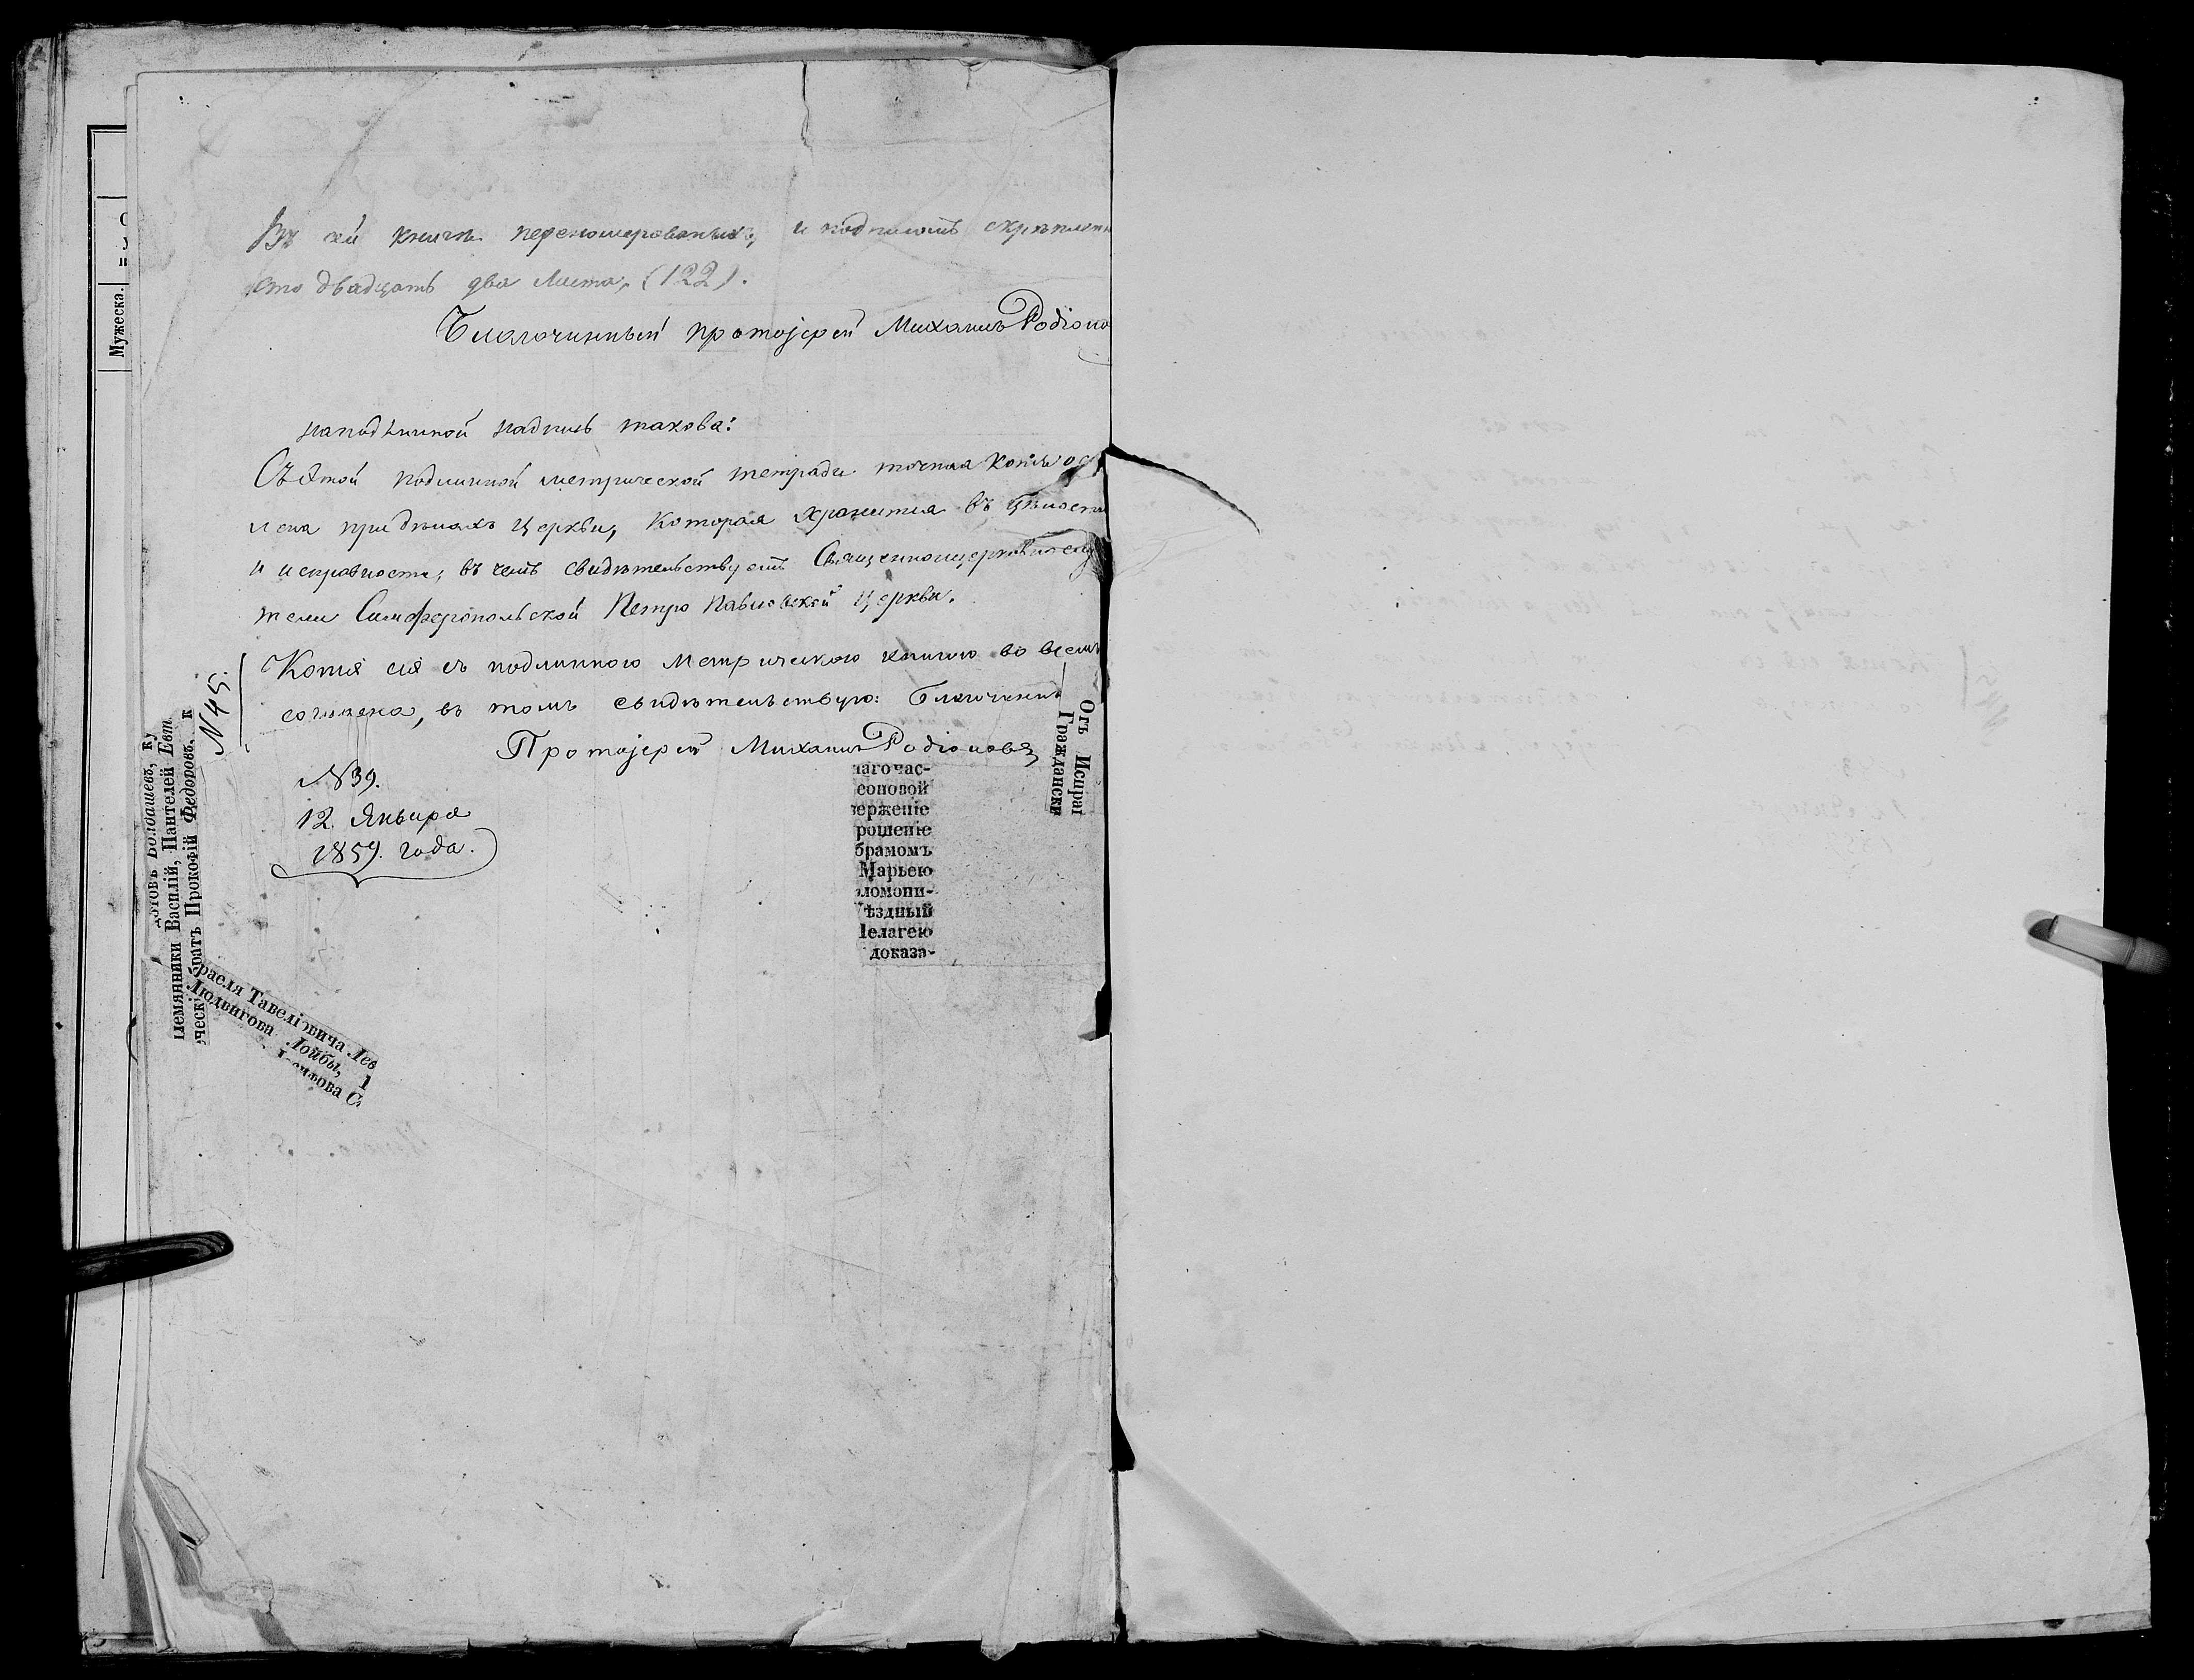 Въ сей книгѣ перепомерованыхъ, и подписомъ скрѣплен
сто двадцать два листа, (122).
Благочинный протоіерей Михаилъ Родіоно
наподлинной надпись такова:
Съ этой подлинной метрической тетради точная копія ос
лена придѣлахъ церкви, которая хранится въ цѣлости
и исправности, въ чемъ свидѣтельствуютъ Священноцерковнослу
тели Симферопольской Петро Павловской церкви.
Копія сія съ подлинною метрическою книгою во всемъ
согласна, въ томъ свидѣтельствую: Благочинны
Протоіерей Михаилъ Родіоновъ
N 45.
N 39.
12. Января
1859. года.
Мужеска.
Болдашевъ, ку
Племянники Василій, Пантелей Евт
ческі братъ Прокофій Федоровъ, к
раеля Тавелівича Лев
Людвигова Лойбы, 1
ова С
Отъ Исправ
Граждански
нагочас-
соновой
верженіе
рошеніе
брамомъ
Марьею
ломони-
ѣздный
Пелагею
доказа-